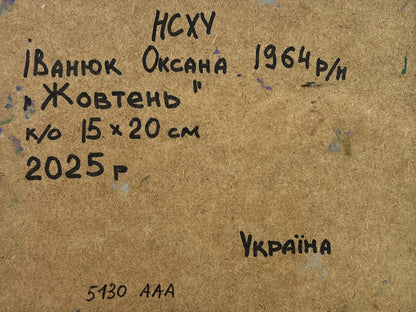 НСХУ
Іванюк Оксана 1964 р/н
"Жовтень"
к/о 15×20 см
2025 р
Україна
5130 ААА